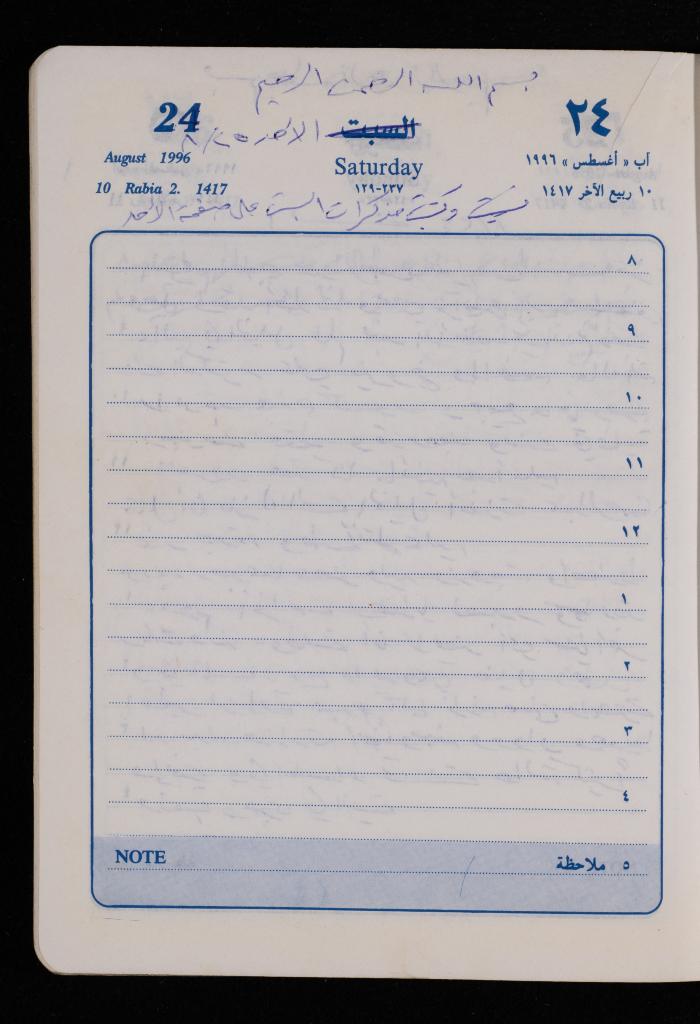 بسم الله الرحمن الرحيم
24 السبت الأحد ٢٥/٨ ٢٤
August 1996 Saturday آب « أغسطس » ١٩٩٦
10 Rabia 2. 1417 ٢٣٧-١٢٩ ١٠ ربيع الآخر ١٤١٧
نسيت وكتبت مذكرات السبت على صفحة الأحد
٨
٩
١٠
١١
١٢
١
٢
٣
٤
NOTE ٥ ملاحظة